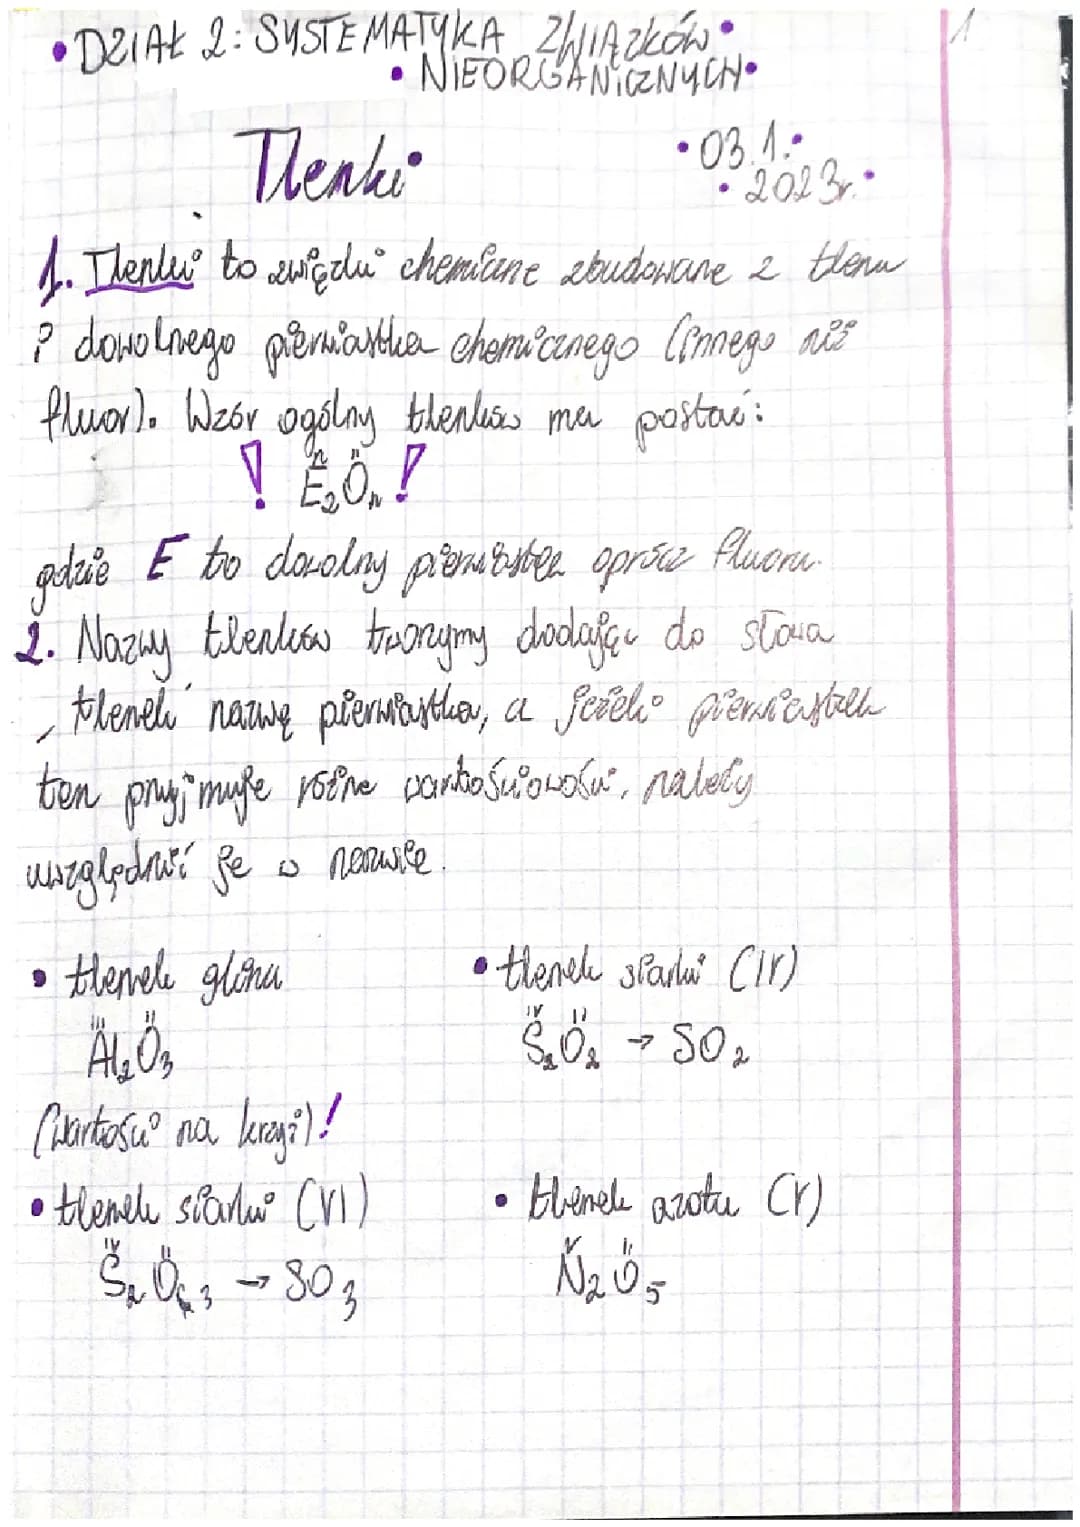 •DZIAŁ 2: SYSTEMATYKA ZWIĄZKÓW•
•NIEORGANICZNYCH•
1
Tlenki
•03.1.•
•2023r.•
1. Tlenki to związki chemiczne zbudowane z tlenu
i dowolnego pierwiastka chemicznego (innego niż
fluor). Wzór ogólny tlenków ma postać:
! E₂ⁿOₙᴵᴵ !
gdzie E to dowolny pierwiastek oprócz fluoru.
2. Nazwy tlenków tworzymy dodając do słowa
„tlenek" nazwę pierwiastka, a jeżeli pierwiastek
ten przyjmuje różne wartościowości, należy
uwzględnić je w nazwie.
• tlenek glinu
• tlenek siarki (IV)
Al₂ᴵᴵᴵO₃ᴵᴵ
S₂ᴵⱽO₂ᴵᴵ → SO₂
(wartości na krzyż)!
• tlenek siarki (VI)
• tlenek azotu (V)
S₂O₆ 3 → SO₃
N₂ⱽO₅ᴵᴵ